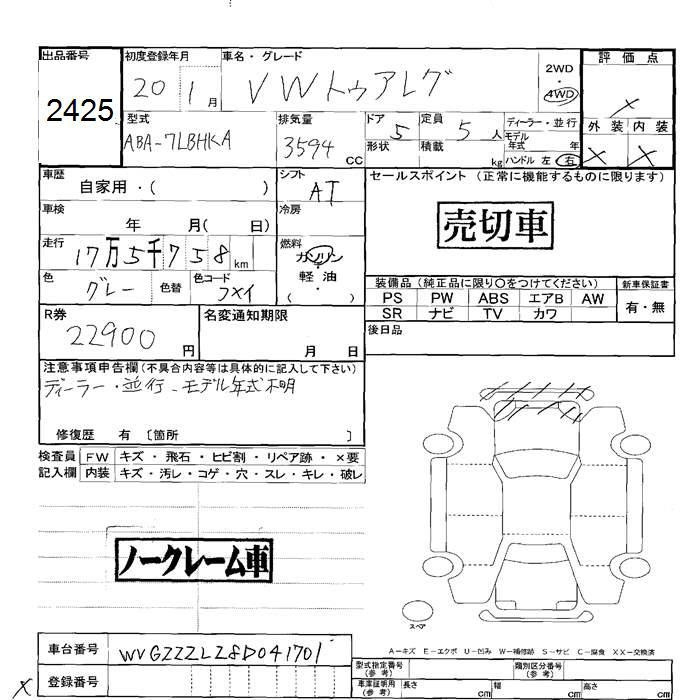 出品番号 初度登録年月 車名・グレード 評価点
2425 20 1月 VWトゥアレグ 2WD 4WD X
型式 排気量 ドア 定員 ディーラー・並行 外装 内装
ABA-7LBHKA 3594 CC 5 5 人 モデル年式 年
形状 積載 kg ハンドル 左 右 X X
車歴 自家用・( ) シフト AT セールスポイント (正常に機能するものに限ります)
車検 年 月( 日) 冷房
売切車
走行 17万5千758km 燃料 ガソリン
軽油
( ・ )
色 グレー 色替 色コード
装備品 (純正品に限り○をつけてください) 新車保証書
PS PW ABS エアB AW 有・無
SR ナビ TV カワ
R券 22900円 名変通知期限 月 日 後日品
注意事項申告欄(不具合内容等は具体的に記入して下さい)
ディーラー・並行-モデル年式不明
修復歴 有 〔箇所 〕
検査員 FW キズ・飛石・ヒビ割・リペア跡・×要
記入欄 内装 キズ・汚レ・コゲ・穴・スレ・キレ・破レ
ノークレーム車
スペア
A-キズ E-エクボ U-凹み W-補修跡 S-サビ C-腐食 XX-交換済
車台番号 WVGZZZLZ8D041701
登録番号
型式指定番号(参考) 類別区分番号(参考)
車庫証明用(参考) 長さ cm 幅 cm 高さ cm
X